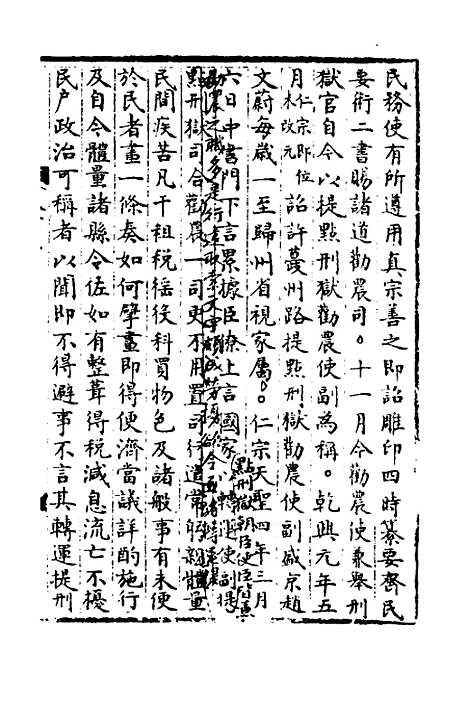 民務使有所遵用真宗善之即詔雕印四時纂要齊民
要術二書賜諸道勸農司。十一月令勸農使兼舉刑
獄官自今以提點刑獄勸農使副為稱。乾興元年五
月仁宗即位未改元詔許蘷州路提點刑獄勸農使副臧京趙
文蔚每歲一至歸州省視家屬。仁宗天聖四年三月
六日中書門下言累據臣僚上言國家轉運使副提
點刑獄朝臣使臣皆帶
勸農之職多是行遣
點刑獄司合勸農一司更不用置司行遣常體量
民間疾苦凡干租稅徭役科買物色及諸般事有未便
於民者畫一條奏如何擘畫即得便濟當議詳酌施行
及自今體量諸縣令佐如有整葺得稅減息流亡不擾
民户政治可稱者以聞即不得避事不言其轉運提刑